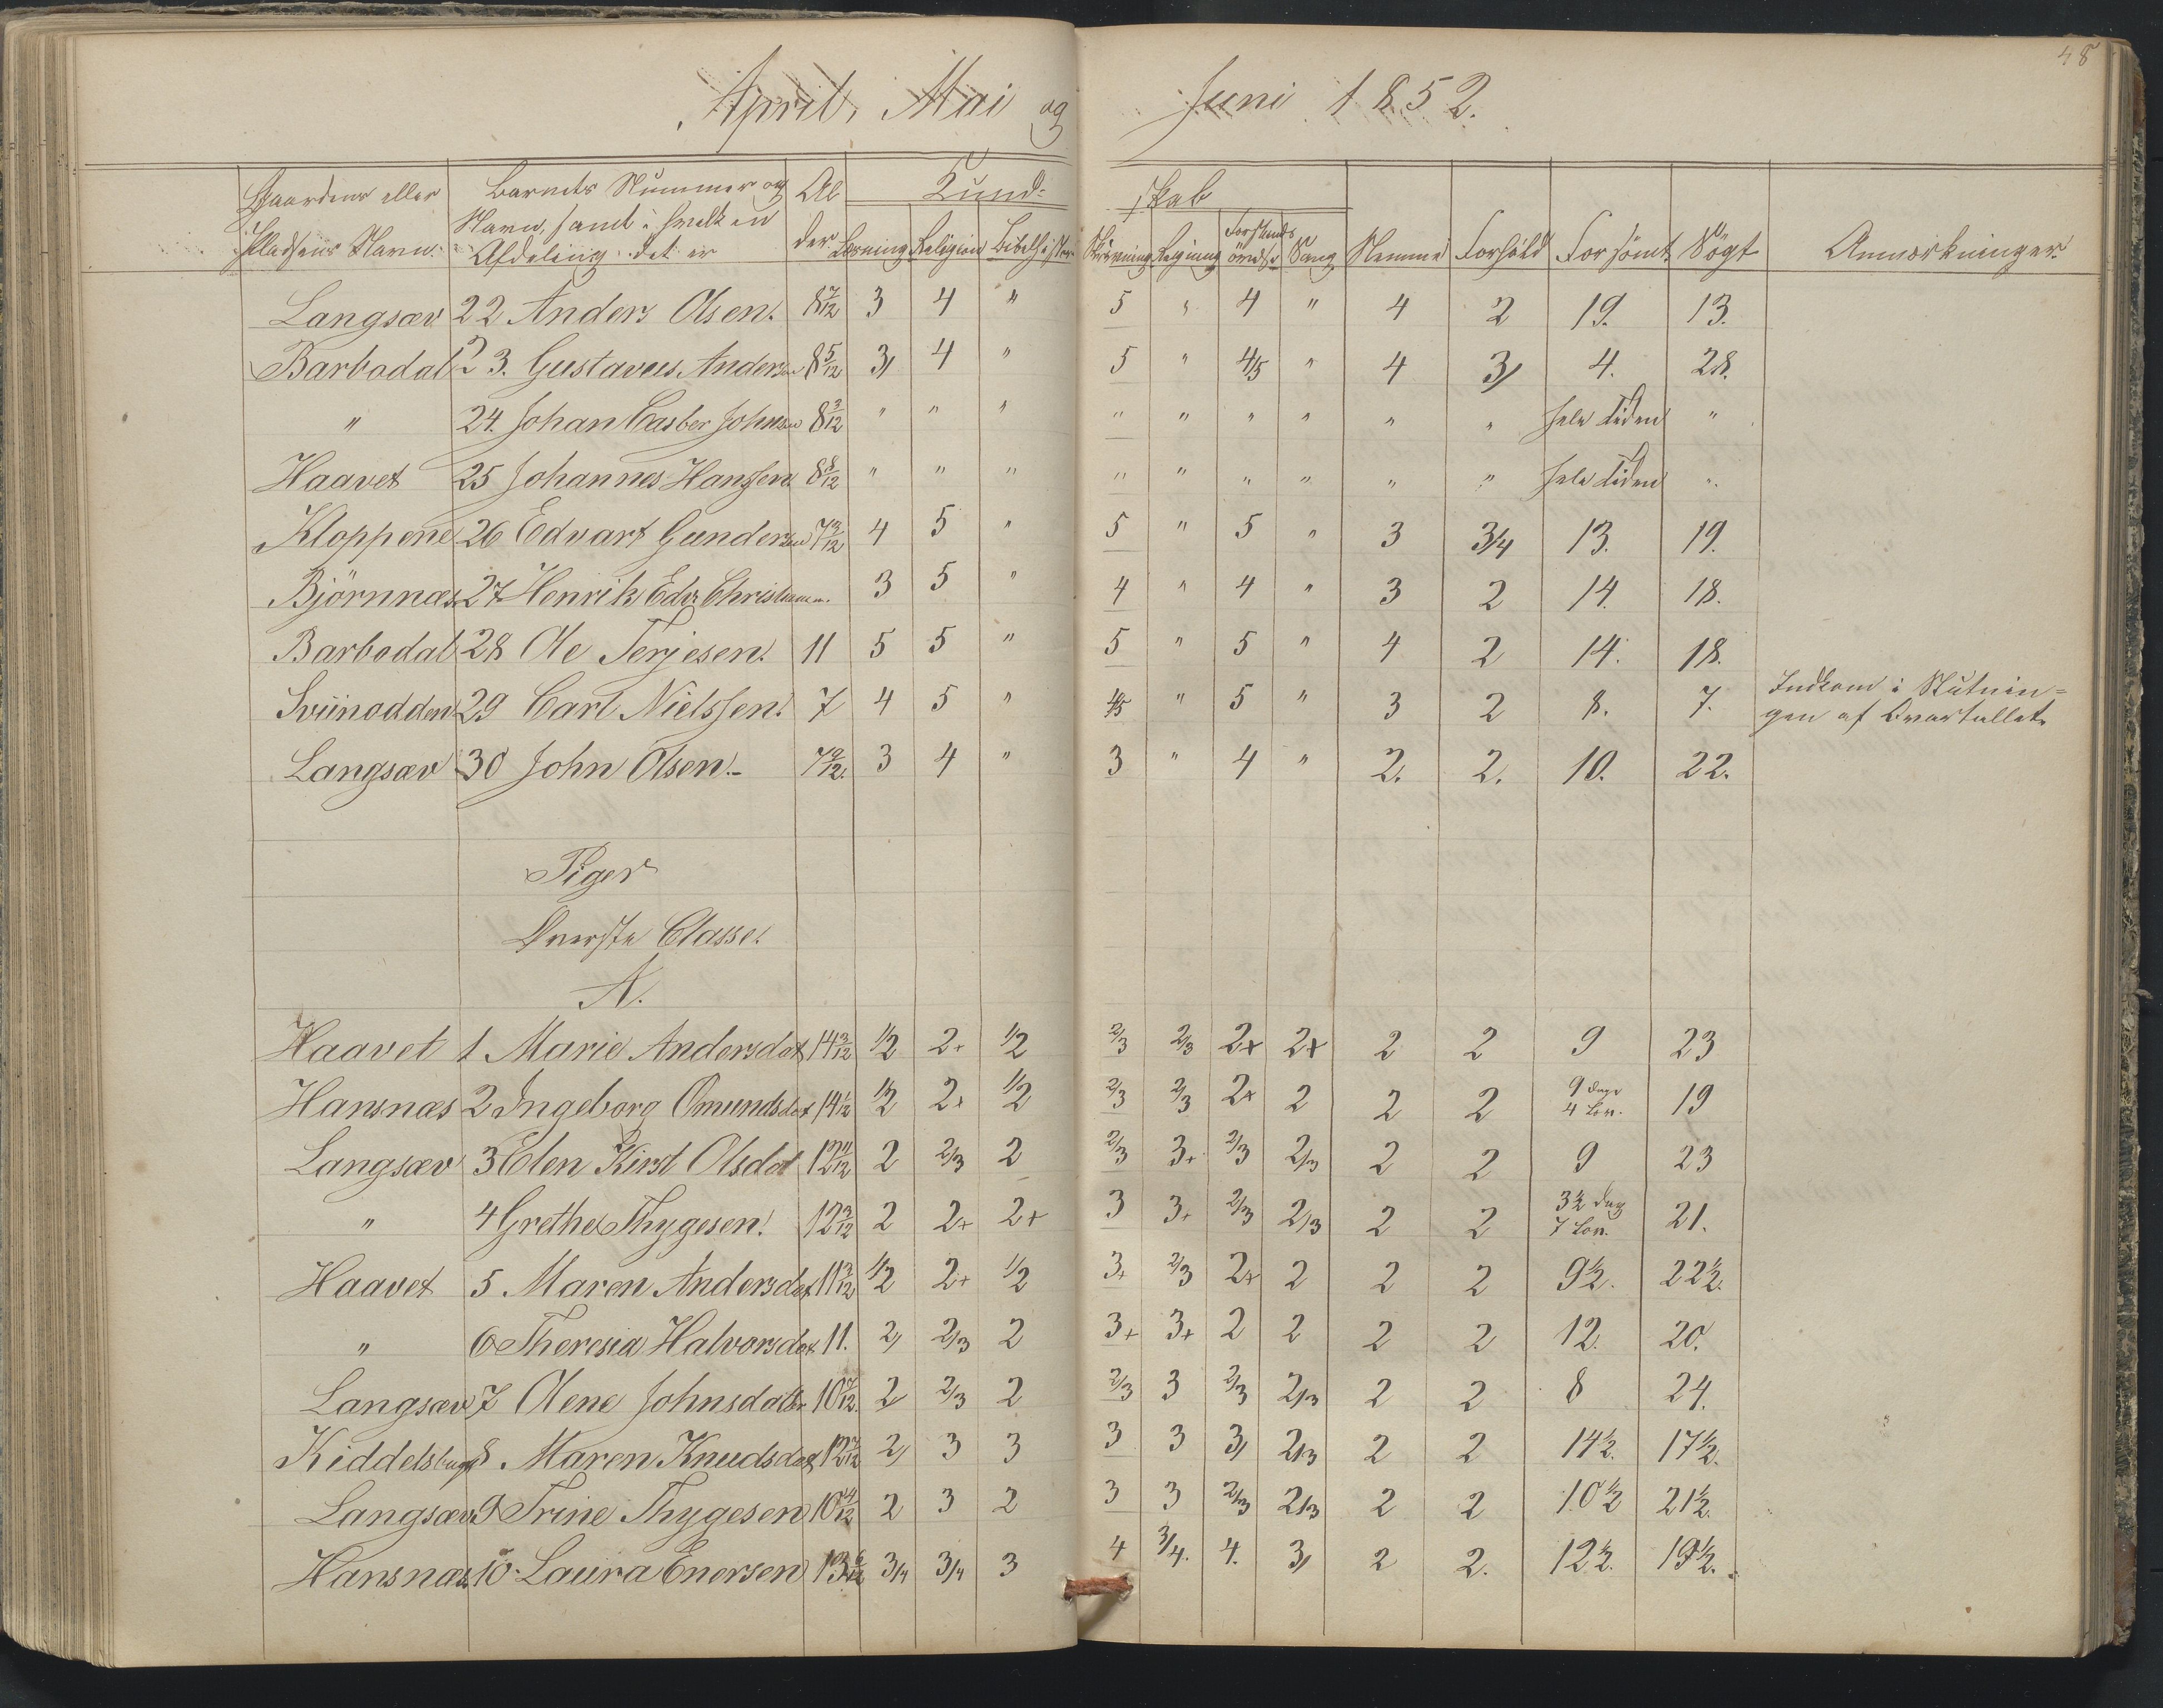 48
April, Mai og Juni 1852.
Gaardens eller Pladsens Navn. | Barnets Nummer og Navn, samt i hvilken Afdeling det er | Alder | Kundskab | Nemme | Forhold | Forsömt | Sögt | Anmærkninger.
Læsning | Religion | Bibelhistor. | Skrivning | Regning | Forstandsövelse | Sang
Langsæv 22 Anders Olsen. 8 7/12 3 4 " 5 " 4 " 4 2 19. 13.
Barbodal 23. Gustavus Andersen 8 5/12 3/ 4 " 5 " 4/5 " 4 3/ 4. 28.
" 24. Johan Casber Johnsen 8 3/12 " " " " " " " " " hele Tiden "
Haavet 25 Johannes Hanssen 8 8/12 " " " " " " " " " hele Tiden "
Kloppene 26 Edvart Gundersen 7 3/12 4 5 " 5 " 5 " 3 3/4 13. 19.
Björnnæs 27 Henrik Edv. Christensen. 3 5 " 4 " 4 " 3 2 14. 18.
Barbodal 28 Ole Terjesen. 11 5 5 " 5 " 5 " 4 2 14. 18.
Sviinodden 29 Carl Nielssen. 7 4 5 " 4/5 " 5 " 3 2 8. 7. Indkom i Slutnin=
gen af Qvartallet.
Langsæv 30 John Olsen.- 7 2/12. 3 4 " 3 " 4 " 2. 2. 10. 22.
Piger
Överste Classe.
A.
Haavet 1 Marie Andersdat 14 3/12 1/2 2+ 1/2 2/3 2/3 2+ 2+ 2 2 9 23
Hansnæs 2 Ingeborg Omundsdat 14 1/12 1/2 2+ 1/2 2/3 2/3 2+ 2 2 2 9 Dage 4 Lov. 19
Langsæv 3 Elen Kirst Olsdat 12 4/12 2 2/3 2 2/3 3+ 2/3 2/3 2 2 9 23
" 4 Grethe Thygesen. 12 3/12 2 2+ 2+ 3 3+ 2/3 2/3 2 2 3 1/2 Dag 7 Lov. 21.
Haavet 5 Maren Andersdat 11 3/12 1/2 2+ 1/2 3+ 2/3 2+ 2 2 2 9 1/2. 22 1/2.
" 6 Theresia Halvorsdat 11. 2/ 2/3 2 3+ 3+ 2 2 2 2 12. 20.
Langsæv 7 Olene Johnsdatter 10 7/12. 2/ 2/3 2 2/3 3 2/3 2/3 2 2 8 24.
Kiddelsbugt 8 Maren Knudsdat 12 7/12 2/ 3 3 3 3 3/ 2/3 2 2 14 1/2. 17 1/2.
Langsæv 9 Trine Thygesen 10 4/12 2 3 2 3 3 2/3 2/3 2 2 10 1/2 21 1/2.
Hansnæs 10 Laura Enersen 13 6/12 3/4 3/4 3 4 3/4. 4. 3/ 2 2. 12 1/2. 19 1/2.